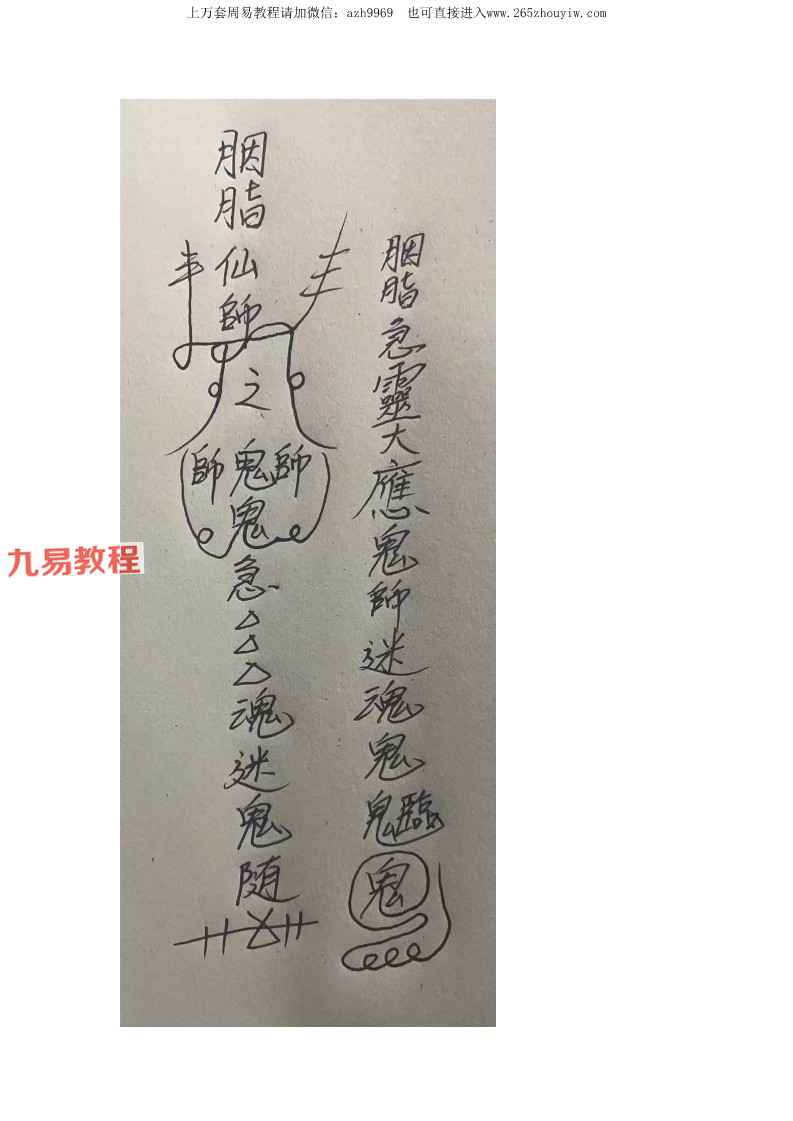 上万套周易教程请加微信：azh9969 也可直接进入www.265zhouyiw.com
胭脂急靈大應鬼師迷魂鬼
鬼臨
鬼
胭脂仙師
之
師鬼師
鬼
急
魂迷鬼随
九易教程